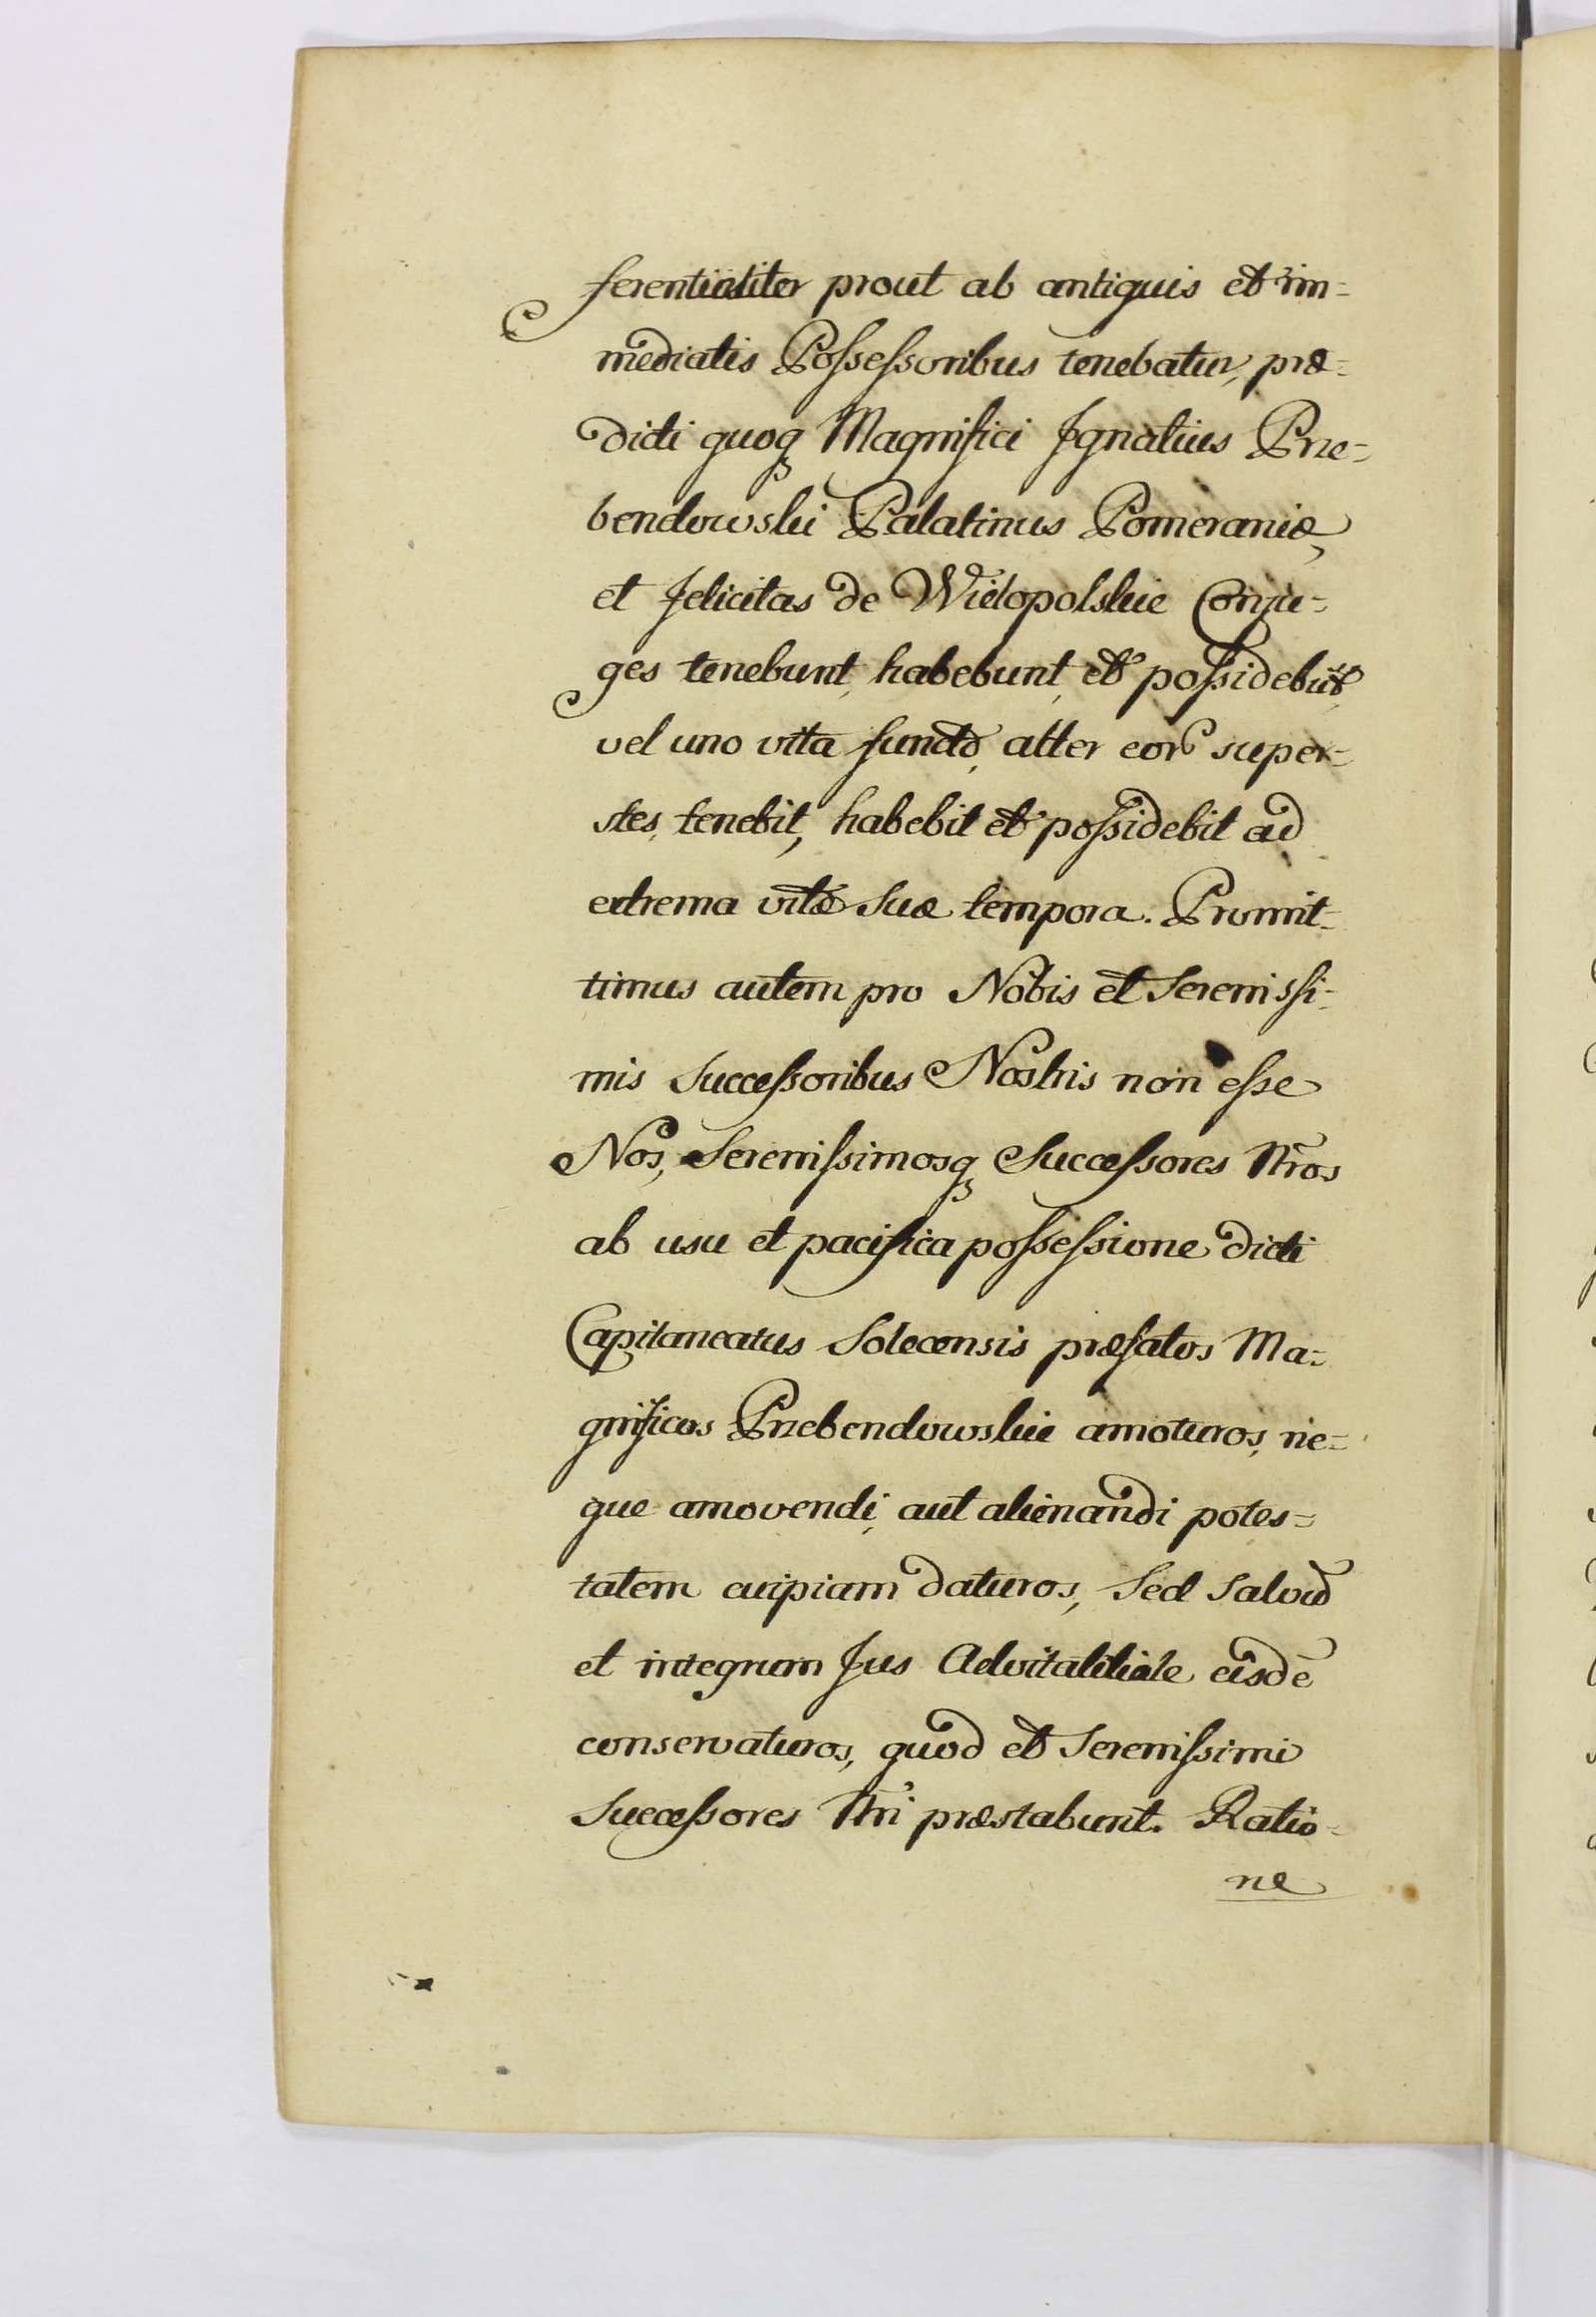 ferentialiter prout ab antiquis et im=
mediatis Possessoribus tenebatur, præ=
dicti quoq Magnifici Ignatius Prze=
bendowski Palatinus Pomeraniæ,
et Felicitas de Wielopolskie Conju=
ges tenebunt, habebunt, et possidebūt,
vel uno vita functo, alter eor̃ super=
stes, tenebit, habebit et possidebit ad
extrema vitæ suæ tempora. Promit=
timus autem pro Nobis et Serenissi=
mis Successoribus Nostris non esse
Nos, Serenissimosq Successores Nr̃os
ab usu et pacifica possessione dicti
Capitaneatus Solecensis præfatos Ma=
gnificos Przebendowskie amoturos, ne=
que amovendi, aut alienandi potes=
tatem cuipiam daturos, Sed Salvū
et integrum Jus Advitalitiale eisdē
conservaturos, quod et Serenissimi
Successores Nr̃i præstabunt. Ratio=
ne